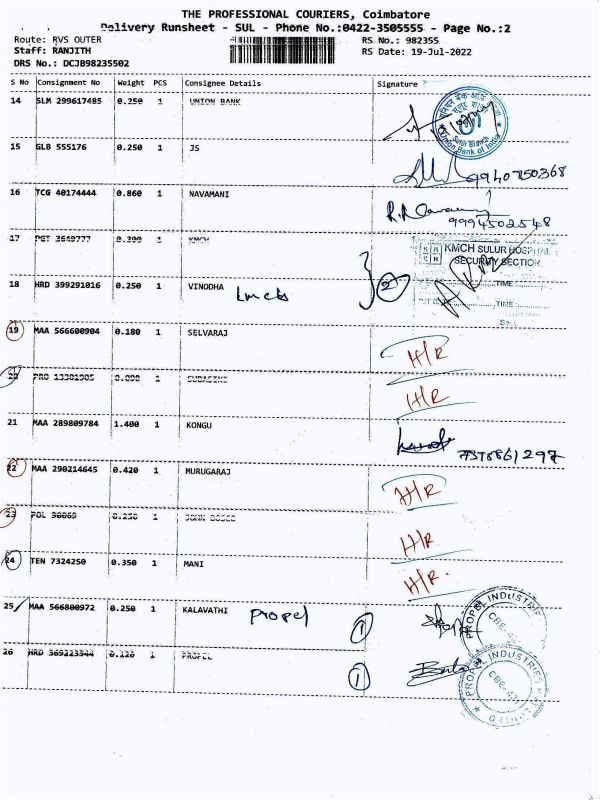 THE PROFESSIONAL COURIERS, Coimbatore
Delivery Runsheet - SUL - Phone No.:0422-3505555 - Page No.:2
Route: RVS OUTER RS No.: 982355
Staff: RANJITH RS Date: 19-Jul-2022
DRS No.: DCJB98235502
S No Consignment No Weight PCS Consignee Details Signature
14 SLM 299617485 0.250 1 UNION BANK
Sulur Branch
Union Bank of India
15 GLB 555176 0.250 1 JS
9940750368
16 TCG 40174444 0.860 1 NAVAMANI
9994502548
17 PET 3649777 0.399 1 KMCH
KMCH SULUR HOSPITAL
SECURITY SECTION
18 HRD 399291016 0.250 1 VINODHA kmch 2
TIME
TIME
19 MAA 566600904 0.180 1 SELVARAJ H/R
20 PRO 13381905 1 SUBASINI H/R
21 MAA 289809784 1.400 1 KONGU
22 MAA 290214645 0.420 1 MURUGARAJ H/R
23 POL 98069 0.250 1 JOHN BOSCO H/R
24 TEN 7324250 0.350 1 MANI H/R
25 MAA 566800972 0.250 1 KALAVATHI Propel 1
PROPEL INDUSTRIE
26 HRD 369223544 0.120 1 PROPEL 1
PROPEL INDUSTRIES